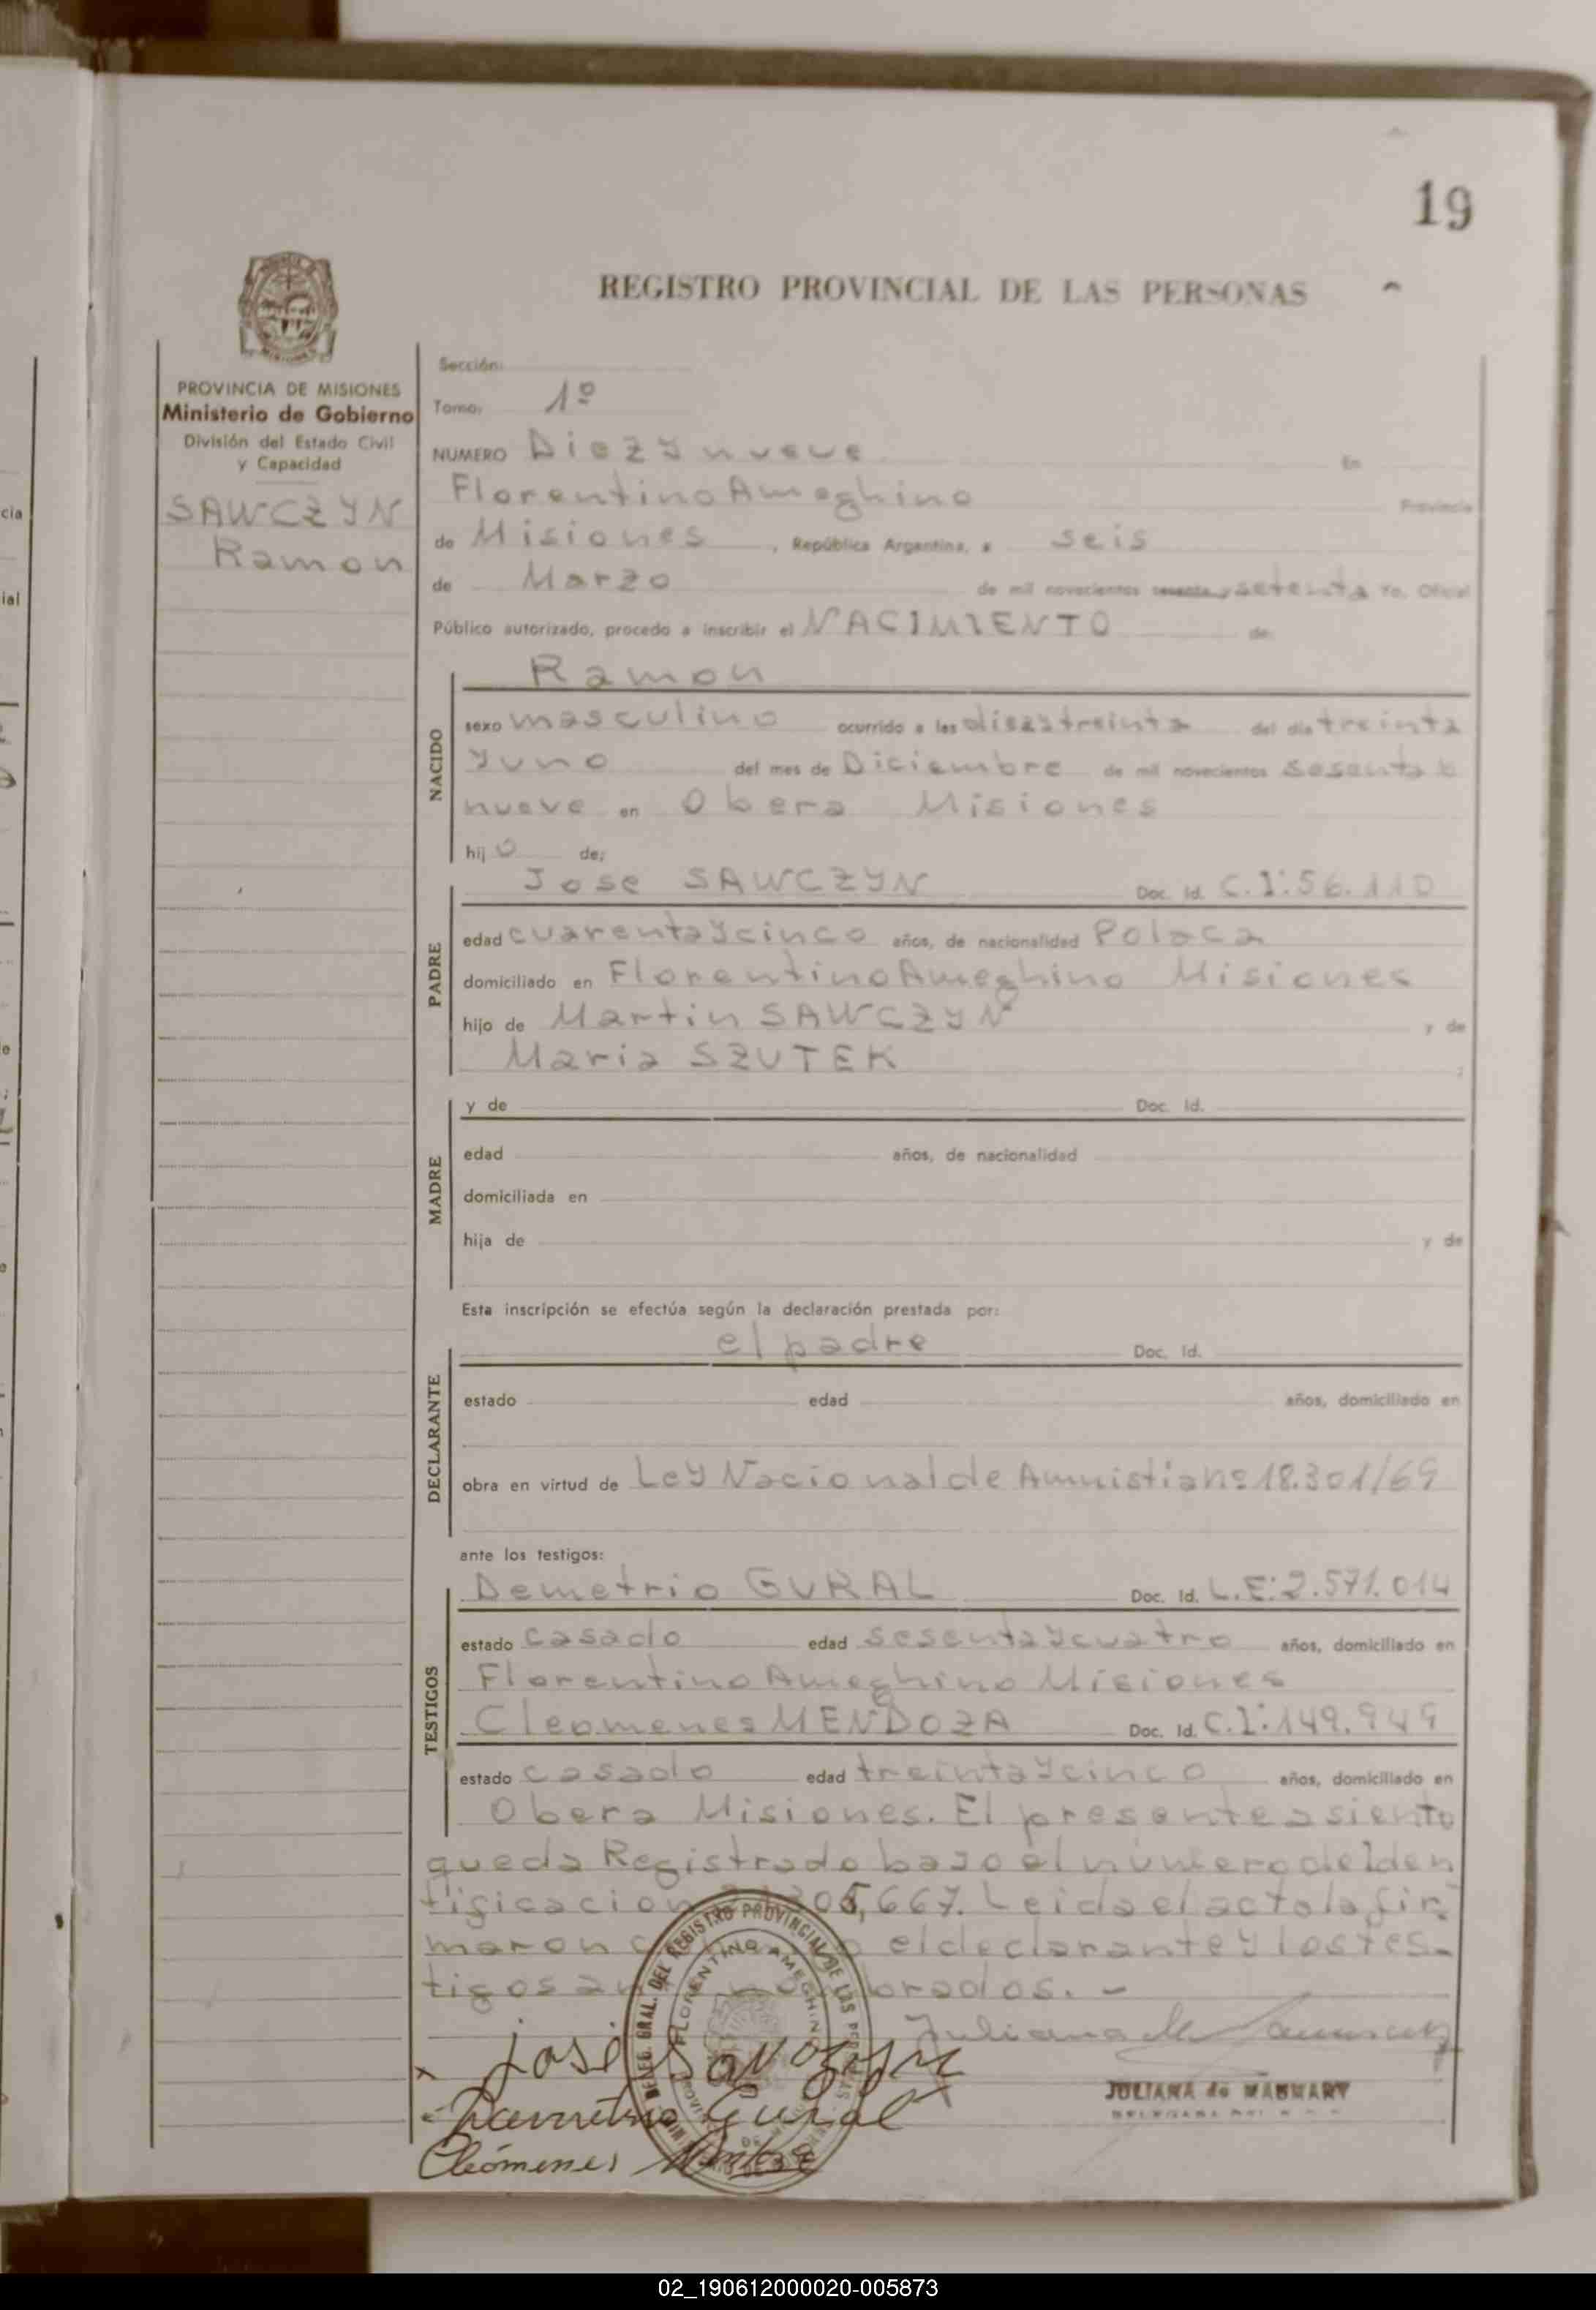 19
REGISTRO PROVINCIAL DE LAS PERSONAS
PROVINCIA DE MISIONES
Ministerio de Gobierno
División del Estado Civil
y Capacidad
SAWCZYN
Ramon
Sección:
Tomo: 1º
NUMERO Diez y nueve En
Florentino Ameghino Provincia
de Misiones, República Argentina, a seis
de Marzo de mil novecientos sesenta y setenta Yo, Oficial
Público autorizado, procedo a inscribir el NACIMIENTO de
NACIDO
Ramon
sexo masculino ocurrido a las diez y treinta del día treinta
y uno del mes de Diciembre de mil novecientos sesenta y
nueve en Obera Misiones
hijo de:
PADRE
Jose SAWCZYN Doc. Id. C.I:56.110
edad cuarenta y cinco años, de nacionalidad Polaca
domiciliado en Florentino Ameghino Misiones
hijo de Martin SAWCZYN y de
Maria SZUTEK ;
MADRE
y de Doc. Id.
edad años, de nacionalidad
domiciliada en
hija de y de
Esta inscripción se efectúa según la declaración prestada por:
DECLARANTE
el padre Doc. Id.
estado edad años, domiciliado en
obra en virtud de Ley Nacional de Amnistia nº 18.301/69
ante los testigos:
TESTIGOS
Demetrio GURAL Doc. Id. L.E:2.571.014
estado casado edad sesenta y cuatro años, domiciliado en
Florentino Ameghino Misiones
Cleomenes MENDOZA Doc. Id. C.I:149.949
estado casado edad treinta y cinco años, domiciliado en
Obera Misiones. El presente asiento
queda Registrado bajo el número de Iden
tificacion 667. Leida el acto la fir
maron el declarante y los tes-
tigos brados. -
José
Gural
JULIANA de
Cleómenes
DELEG. GRAL. DEL REGISTRO PROVINCIAL DE LAS
FLORENTINO AMEGHINO
02_190612000020-005873